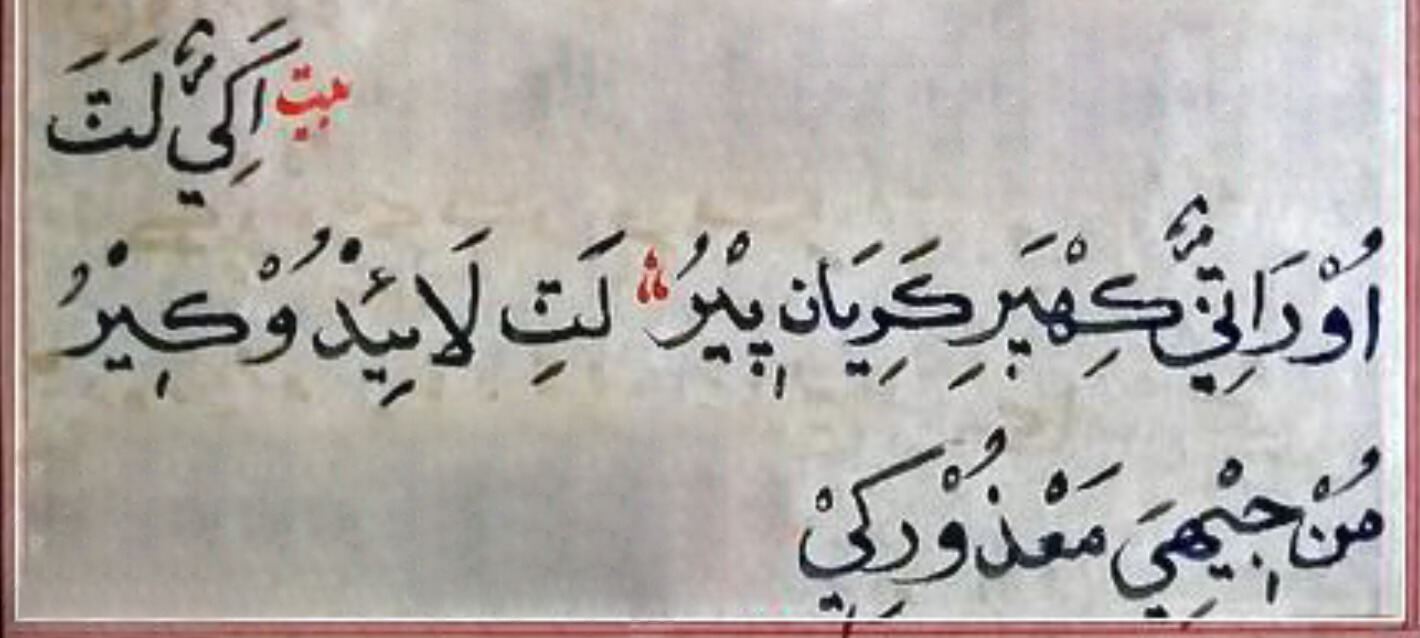 بيت اَکِيِّ لَتَ
اُوْرَاتِيِّ کِهْبَرِ کَرِيَان پِيْرُ لَتِ لَائِيدْوُ کِيْرُ
مُنْ جِيْهِيَ مَعْذُوْرِ کِيْ